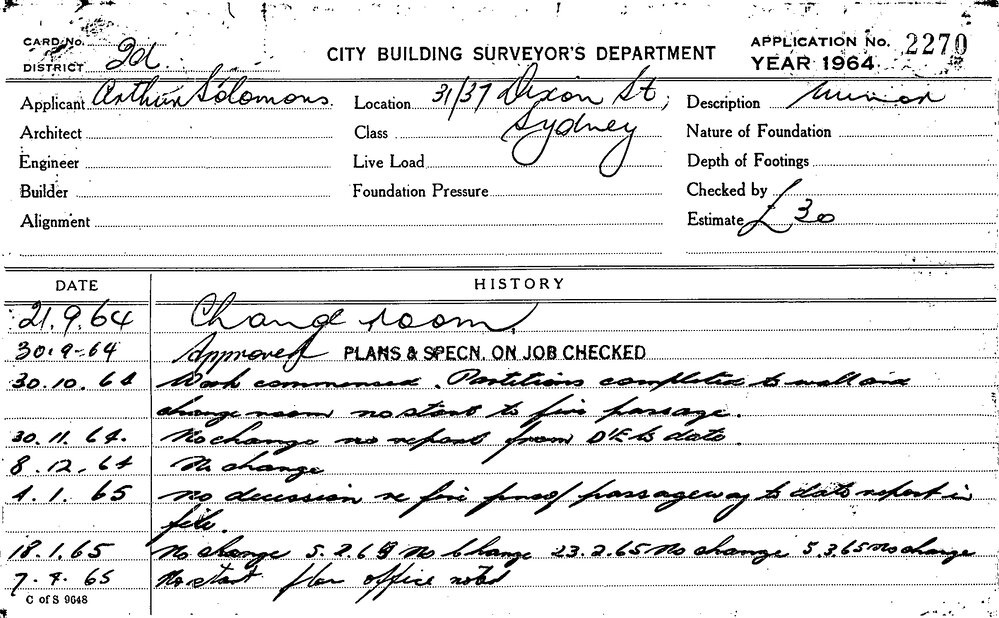 CARD No.
DISTRICT 2d
CITY BUILDING SURVEYOR'S DEPARTMENT
APPLICATION No. 2270
YEAR 1964
Applicant Arthur Solomons. Location 31/37 Dixon St, Description Minor
Architect Class Sydney Nature of Foundation
Engineer Live Load Depth of Footings
Builder Foundation Pressure Checked by
Alignment Estimate £30
DATE HISTORY
21.9.64 Change room
30.9-64 Approved PLANS & SPECN. ON JOB CHECKED
30.10.64 Work commenced. Partitions completed to wall and
change room no start to fire passage.
30.11.64. No change no report from to date.
8.12.64 No change
4.1.65 No decission re fire proof passageway to date report in
file.
18.1.65 No change 5.2.65 No Change 23.2.65 No change 5.3.65 No change
7.4.65 No start office noted
C of S 9648